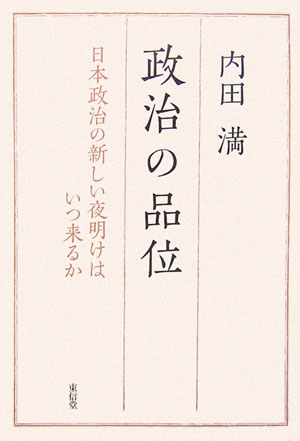 内田 満
政治の品位
日本政治の新しい夜明けは、
いつ来るか
東信堂